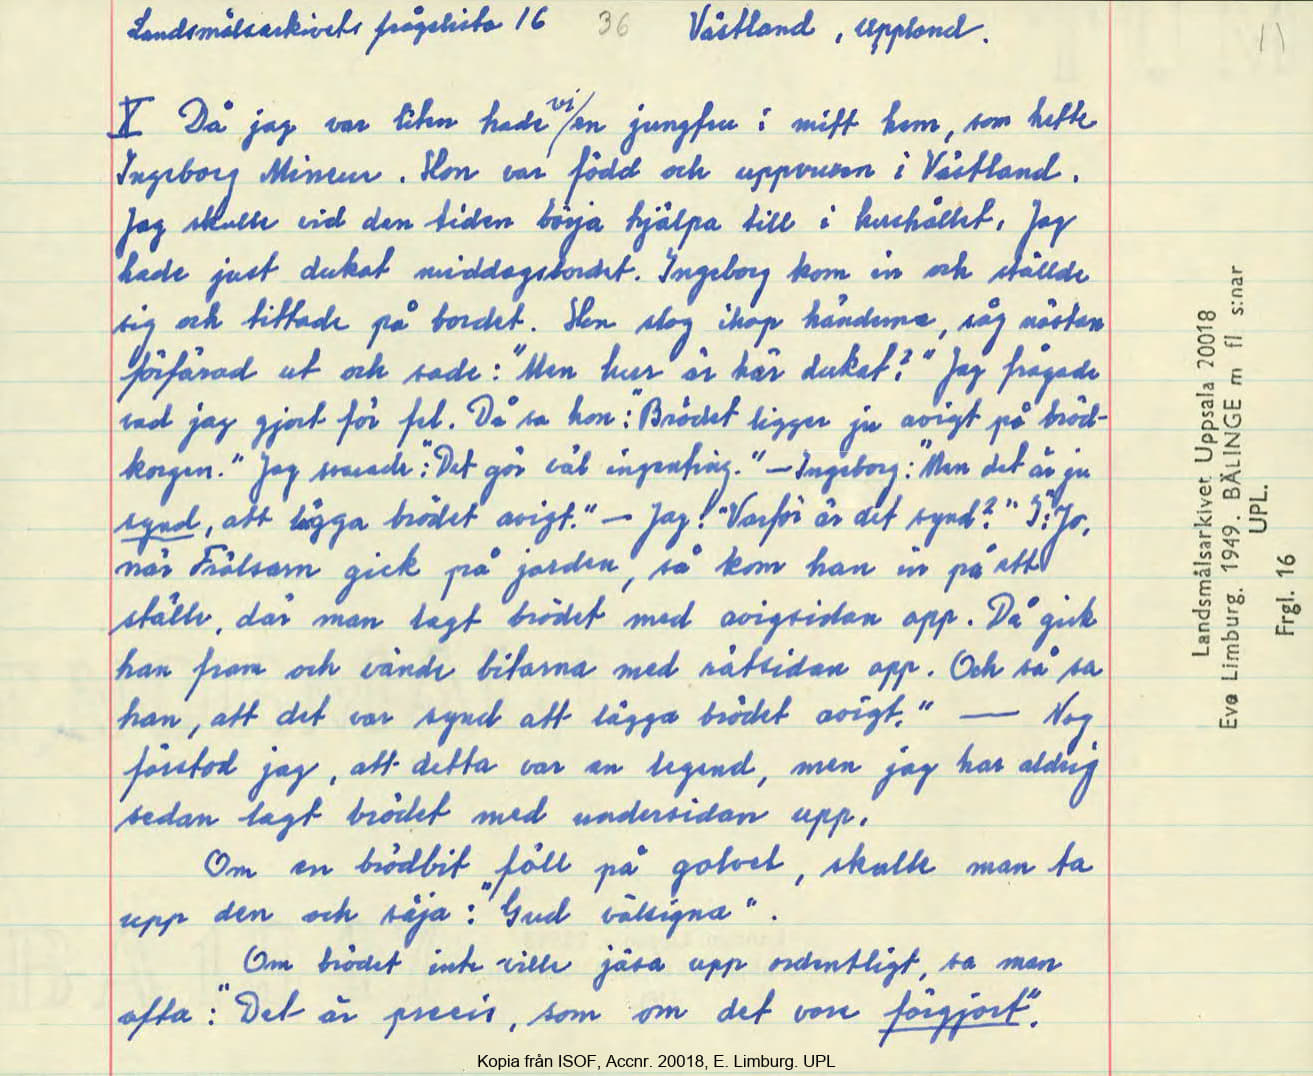 Landsmålsarkivets frågelista 16 36 Västland, Uppland. 1)
V Då jag var liten hade vi/en jungfru i mitt hem, som hette
Ingeborg Mineur. Hon var född och uppvuxen i Västland.
Jag skulle vid den tiden börja hjälpa till i hushållet. Jag
hade just dukat middagsbordet. Ingeborg kom in och ställde
sig och tittade på bordet. Hon slog ihop händerna, såg nästan
förfärad ut och sade: "Men hur är här dukat?" Jag frågade
vad jag gjort för fel. Då sa hon: "Brödet ligger ju avigt på bröd-
korgen." Jag svarade: "Det gör väl ingenting." – Ingeborg: "Men det är ju
synd, att lägga brödet avigt." – Jag: "Varför är det synd?" I: "Jo,
när Frälsarn gick på jorden, så kom han in på ett
ställe, där man lagt brödet med avigsidan opp. Då gick
han fram och vände bitarna med rätsidan opp. Och så sa
han, att det var synd att lägga brödet avigt." — Nog
förstod jag, att detta var en legend, men jag har aldrig
sedan lagt brödet med undersidan upp.
Om en brödbit föll på golvet, skulle man ta
upp den och säja: "Gud välsigna".
Om brödet inte ville jäsa upp ordentligt, sa man
ofta: "Det är precis, som om det vore förgjort".
Landsmålsarkivet Uppsala 20018
Eva Limburg. 1949. BÄLINGE m fl s:nar
UPL.
Frgl. 16
Kopia från ISOF, Accnr. 20018, E. Limburg. UPL